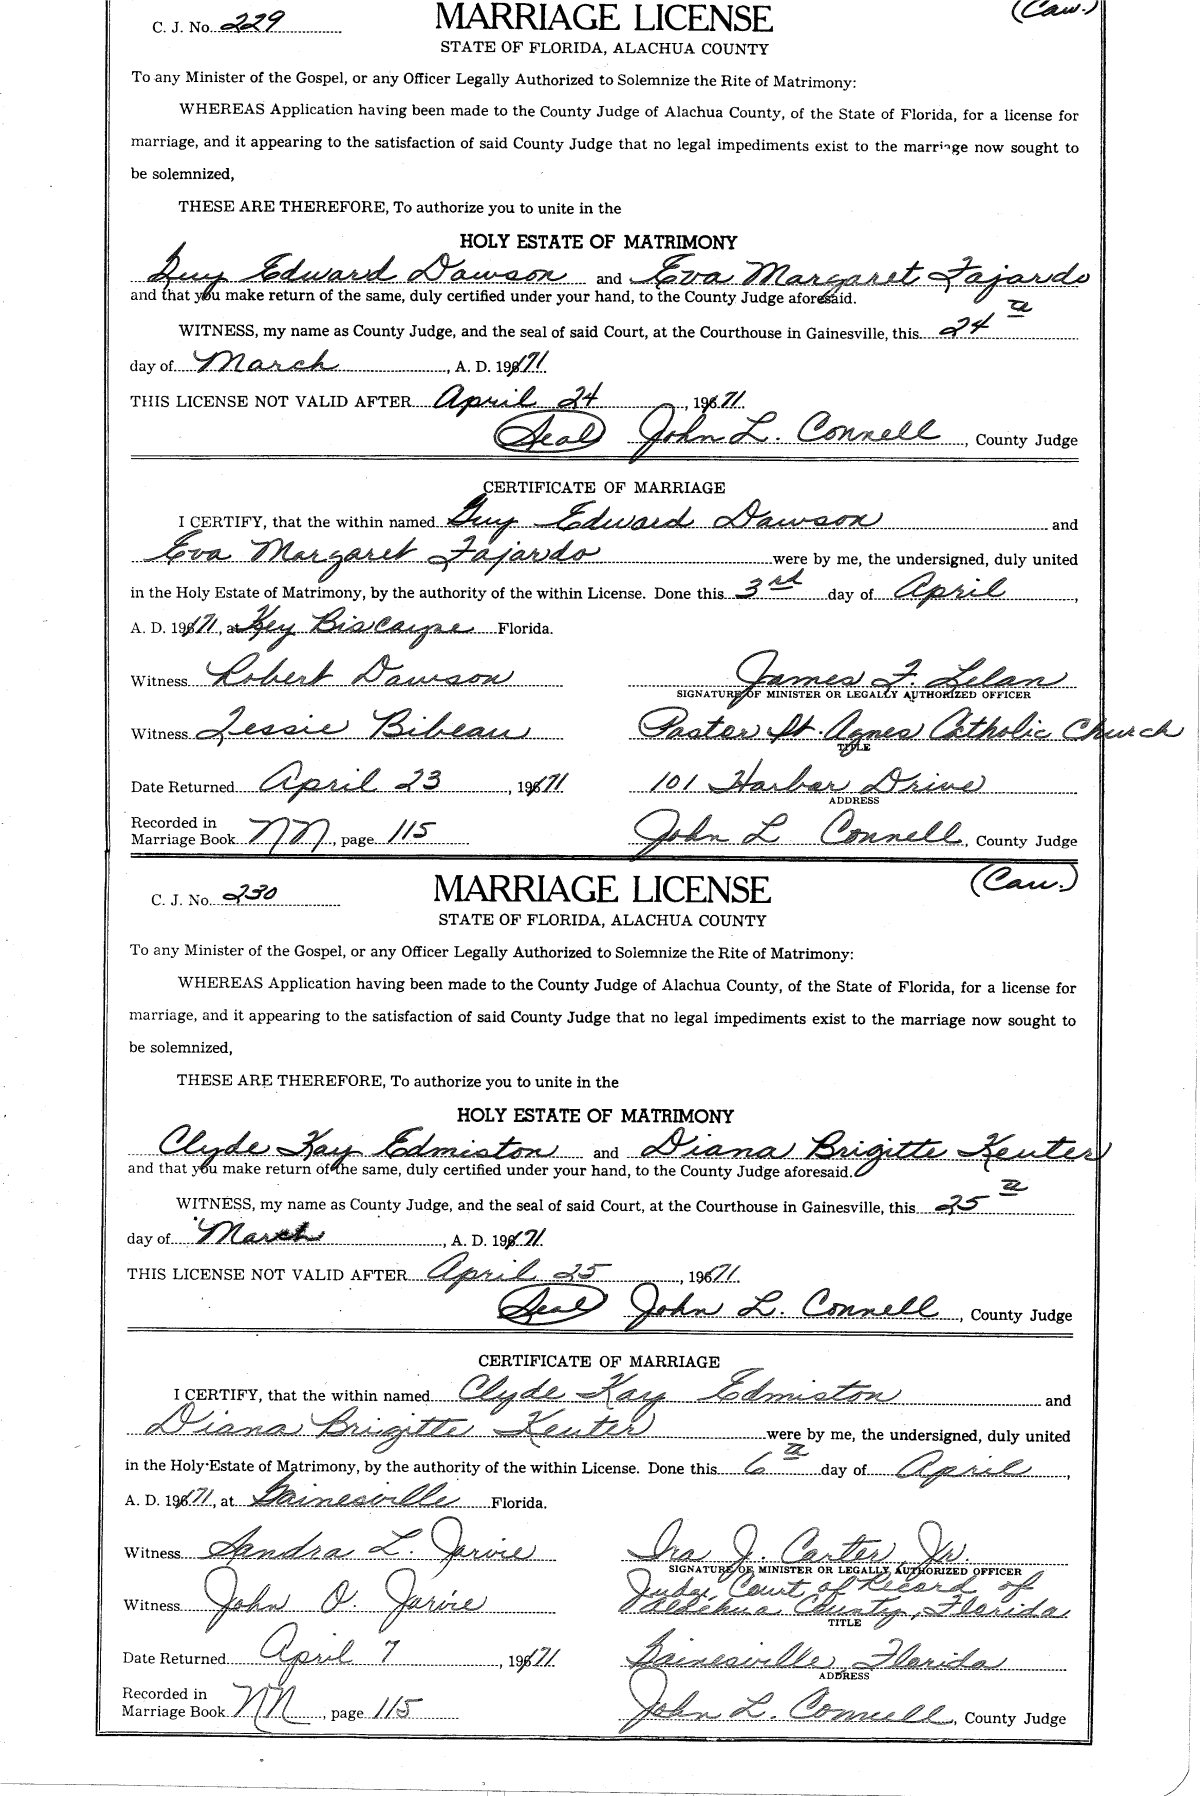 C. J. No. 229 MARRIAGE LICENSE (Cau.)
STATE OF FLORIDA, ALACHUA COUNTY
To any Minister of the Gospel, or any Officer Legally Authorized to Solemnize the Rite of Matrimony:
WHEREAS Application having been made to the County Judge of Alachua County, of the State of Florida, for a license for
marriage, and it appearing to the satisfaction of said County Judge that no legal impediments exist to the marriage now sought to
be solemnized,
THESE ARE THEREFORE, To authorize you to unite in the
HOLY ESTATE OF MATRIMONY
Guy Edward Dawson and Eva Margaret Fajardo
and that you make return of the same, duly certified under your hand, to the County Judge aforesaid.
WITNESS, my name as County Judge, and the seal of said Court, at the Courthouse in Gainesville, this 24th
day of March, A. D. 1971
THIS LICENSE NOT VALID AFTER April 24, 1971
(Seal) John L. Connell, County Judge
CERTIFICATE OF MARRIAGE
I CERTIFY, that the within named Guy Edward Dawson and
Eva Margaret Fajardo were by me, the undersigned, duly united
in the Holy Estate of Matrimony, by the authority of the within License. Done this 3rd day of April,
A. D. 1971, at Key Biscayne Florida.
Witness Robert Dawson James F. Lelan
SIGNATURE OF MINISTER OR LEGALLY AUTHORIZED OFFICER
Witness Jessie Bibeau Pastor St. Agnes Catholic Church
TITLE
Date Returned April 23, 1971 101 Harbor Drive
ADDRESS
Recorded in
Marriage Book NN, page 115 John L Connell, County Judge
C. J. No. 230 MARRIAGE LICENSE (Cau.)
STATE OF FLORIDA, ALACHUA COUNTY
To any Minister of the Gospel, or any Officer Legally Authorized to Solemnize the Rite of Matrimony:
WHEREAS Application having been made to the County Judge of Alachua County, of the State of Florida, for a license for
marriage, and it appearing to the satisfaction of said County Judge that no legal impediments exist to the marriage now sought to
be solemnized,
THESE ARE THEREFORE, To authorize you to unite in the
HOLY ESTATE OF MATRIMONY
Clyde Kay Edmiston and Diana Brigitte Keuter
and that you make return of the same, duly certified under your hand, to the County Judge aforesaid.
WITNESS, my name as County Judge, and the seal of said Court, at the Courthouse in Gainesville, this 25th
day of March, A. D. 1971
THIS LICENSE NOT VALID AFTER April 25, 1971
(Seal) John L. Connell, County Judge
CERTIFICATE OF MARRIAGE
I CERTIFY, that the within named Clyde Kay Edmiston and
Diana Brigitte Keuter were by me, the undersigned, duly united
in the Holy Estate of Matrimony, by the authority of the within License. Done this 6th day of April,
A. D. 1971, at Gainesville Florida.
Witness Sandra L. Jarvie Ira J. Carter, Jr.
SIGNATURE OF MINISTER OR LEGALLY AUTHORIZED OFFICER
Judge, Court of Record of
Witness John O. Jarvie Alachua County, Florida
TITLE
Date Returned April 7, 1971 Gainesville, Florida
ADDRESS
Recorded in
Marriage Book NN, page 115 John L. Connell, County Judge